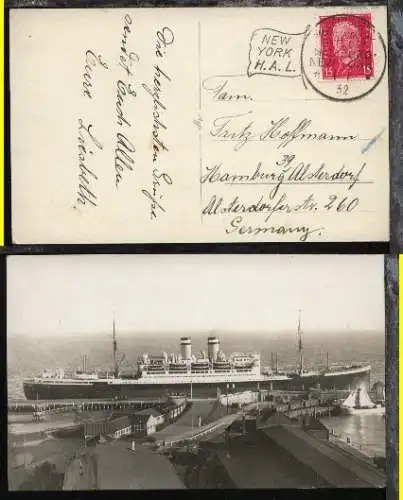 Die herzlichsten Grüße
sendet Euch Allen
Eure Liesbeth.
NEW
YORK
H.A.L.
NEW
32
15
15
Fam.
Fritz Hoffmann
39
Hamburg Alsterdorf
Alsterdorferstr. 260
Germany.